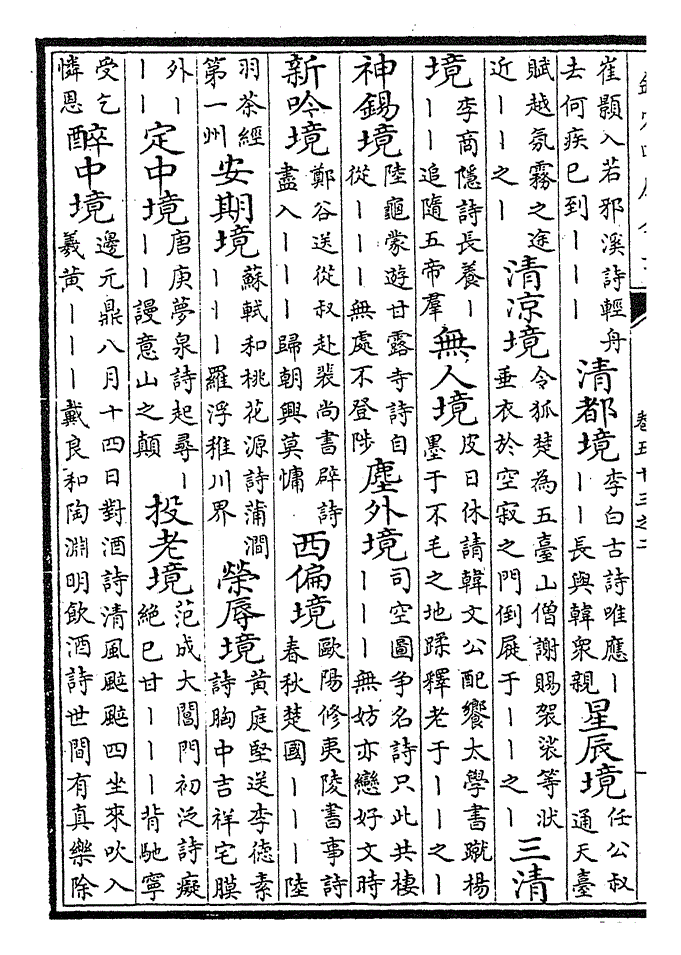 卷五十三之二
崔顥入若邪溪詩輕舟去何疾已到丨丨丨清都境李白古詩唯應丨丨丨長與韓衆親星辰境任公叔通天臺
賦越氛霧之途近丨丨之丨清涼境令狐楚為五臺山僧謝賜袈裟等狀垂衣於空寂之門倒屣于丨丨之丨三清
境李商隱詩長養丨丨丨追隨五帝羣無人境皮日休請韓文公配饗太學書蹴楊墨于不毛之地蹂釋老于丨丨之丨
神錫境陸龜蒙遊甘露寺詩自從丨丨丨無處不登陟塵外境司空圖争名詩只此共棲丨丨丨無妨亦戀好文時
新吟境鄭谷送從叔赴裴尚書辟詩盡入丨丨丨歸朝興莫慵西偏境歐陽修夷陵書事詩春秋楚國丨丨丨陸
羽茶經第一州安期境蘇軾和桃花源詩蒲澗丨丨丨羅浮稚川界榮辱境黄庭堅送李德素詩胸中吉祥宅膜
外丨丨丨定中境唐庚夢泉詩起尋丨丨丨謾意山之顛投老境范成大閶門初泛詩癡絶已甘丨丨丨背馳寧
受乞憐恩醉中境邊元鼎八月十四日對酒詩清風颼颼四坐來吹入羲黄丨丨丨戴良和陶淵明飲酒詩世間有真樂除